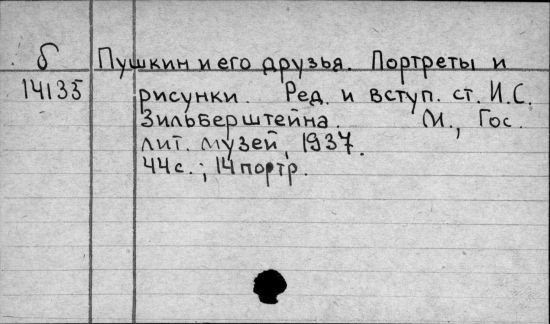 б Пушкин и его друзья. Портреты и
14135 рисунки. Ред. и вступ. ст. И.С.
Зильберштейна. М., Гос.
лит. музей, 1937.
44 с.; 14 портр.